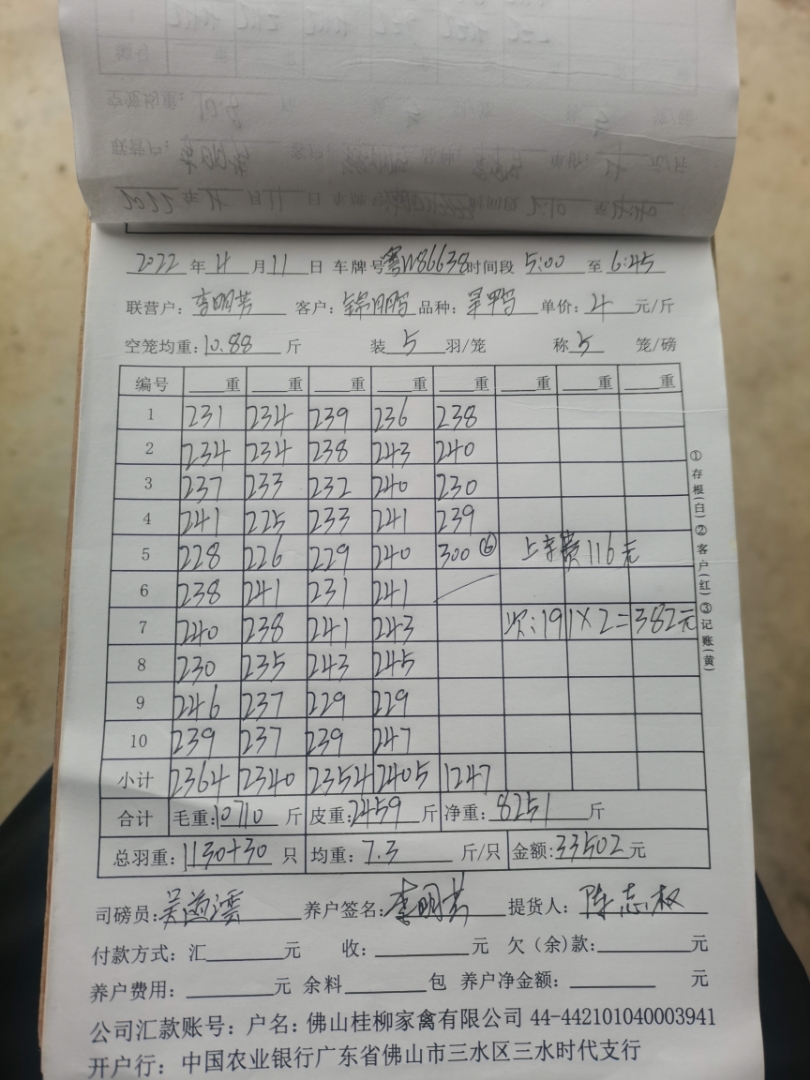 2022 年 4 月 11 日 车牌号 粤W86638 时间段 5:00 至 6:45
联营户: 李明芳 客户: 锦鹏 品种: 单价: 4 元/斤
空笼均重: 10.88 斤 装 5 羽/笼 称 5 笼/磅
编号 重 重 重 重 重 重 重 重
1 231 234 239 236 238
2 234 234 238 243 240
3 237 233 232 240 230
4 241 225 233 241 239
5 228 226 229 240 300 ⑥ 上车费116元
6 238 241 231 241
7 240 238 241 243 次:191×2=382元
8 230 235 243 245
9 246 237 229 229
10 239 237 239 247
小计 2364 2340 2354 2405 1247
合计 毛重: 10710 斤 皮重: 2459 斤 净重: 8251 斤
总羽重: 1130+30 只 均重: 7.3 斤/只 金额: 33502 元
司磅员: 养户签名: 李明芳 提货人: 陈志权
付款方式: 汇 元 收: 元 欠(余)款: 元
养户费用: 元 余料 包 养户净金额: 元
公司汇款账号: 户名: 佛山桂柳家禽有限公司 44-442101040003941
开户行: 中国农业银行广东省佛山市三水区三水时代支行
①存根(白)②客户(红)③记账(黄)